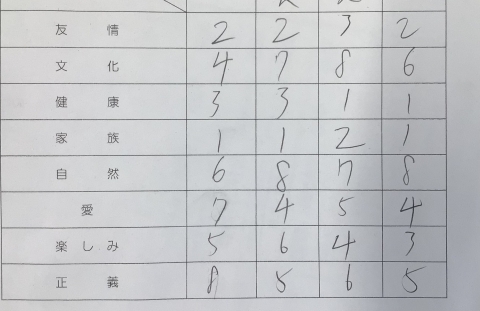 友情 2 2 3 2
文化 4 7 8 6
健康 3 3 1 1
家族 1 1 2 1
自然 6 8 7 8
愛 7 4 5 4
楽しみ 5 6 4 3
正義 8 5 6 5